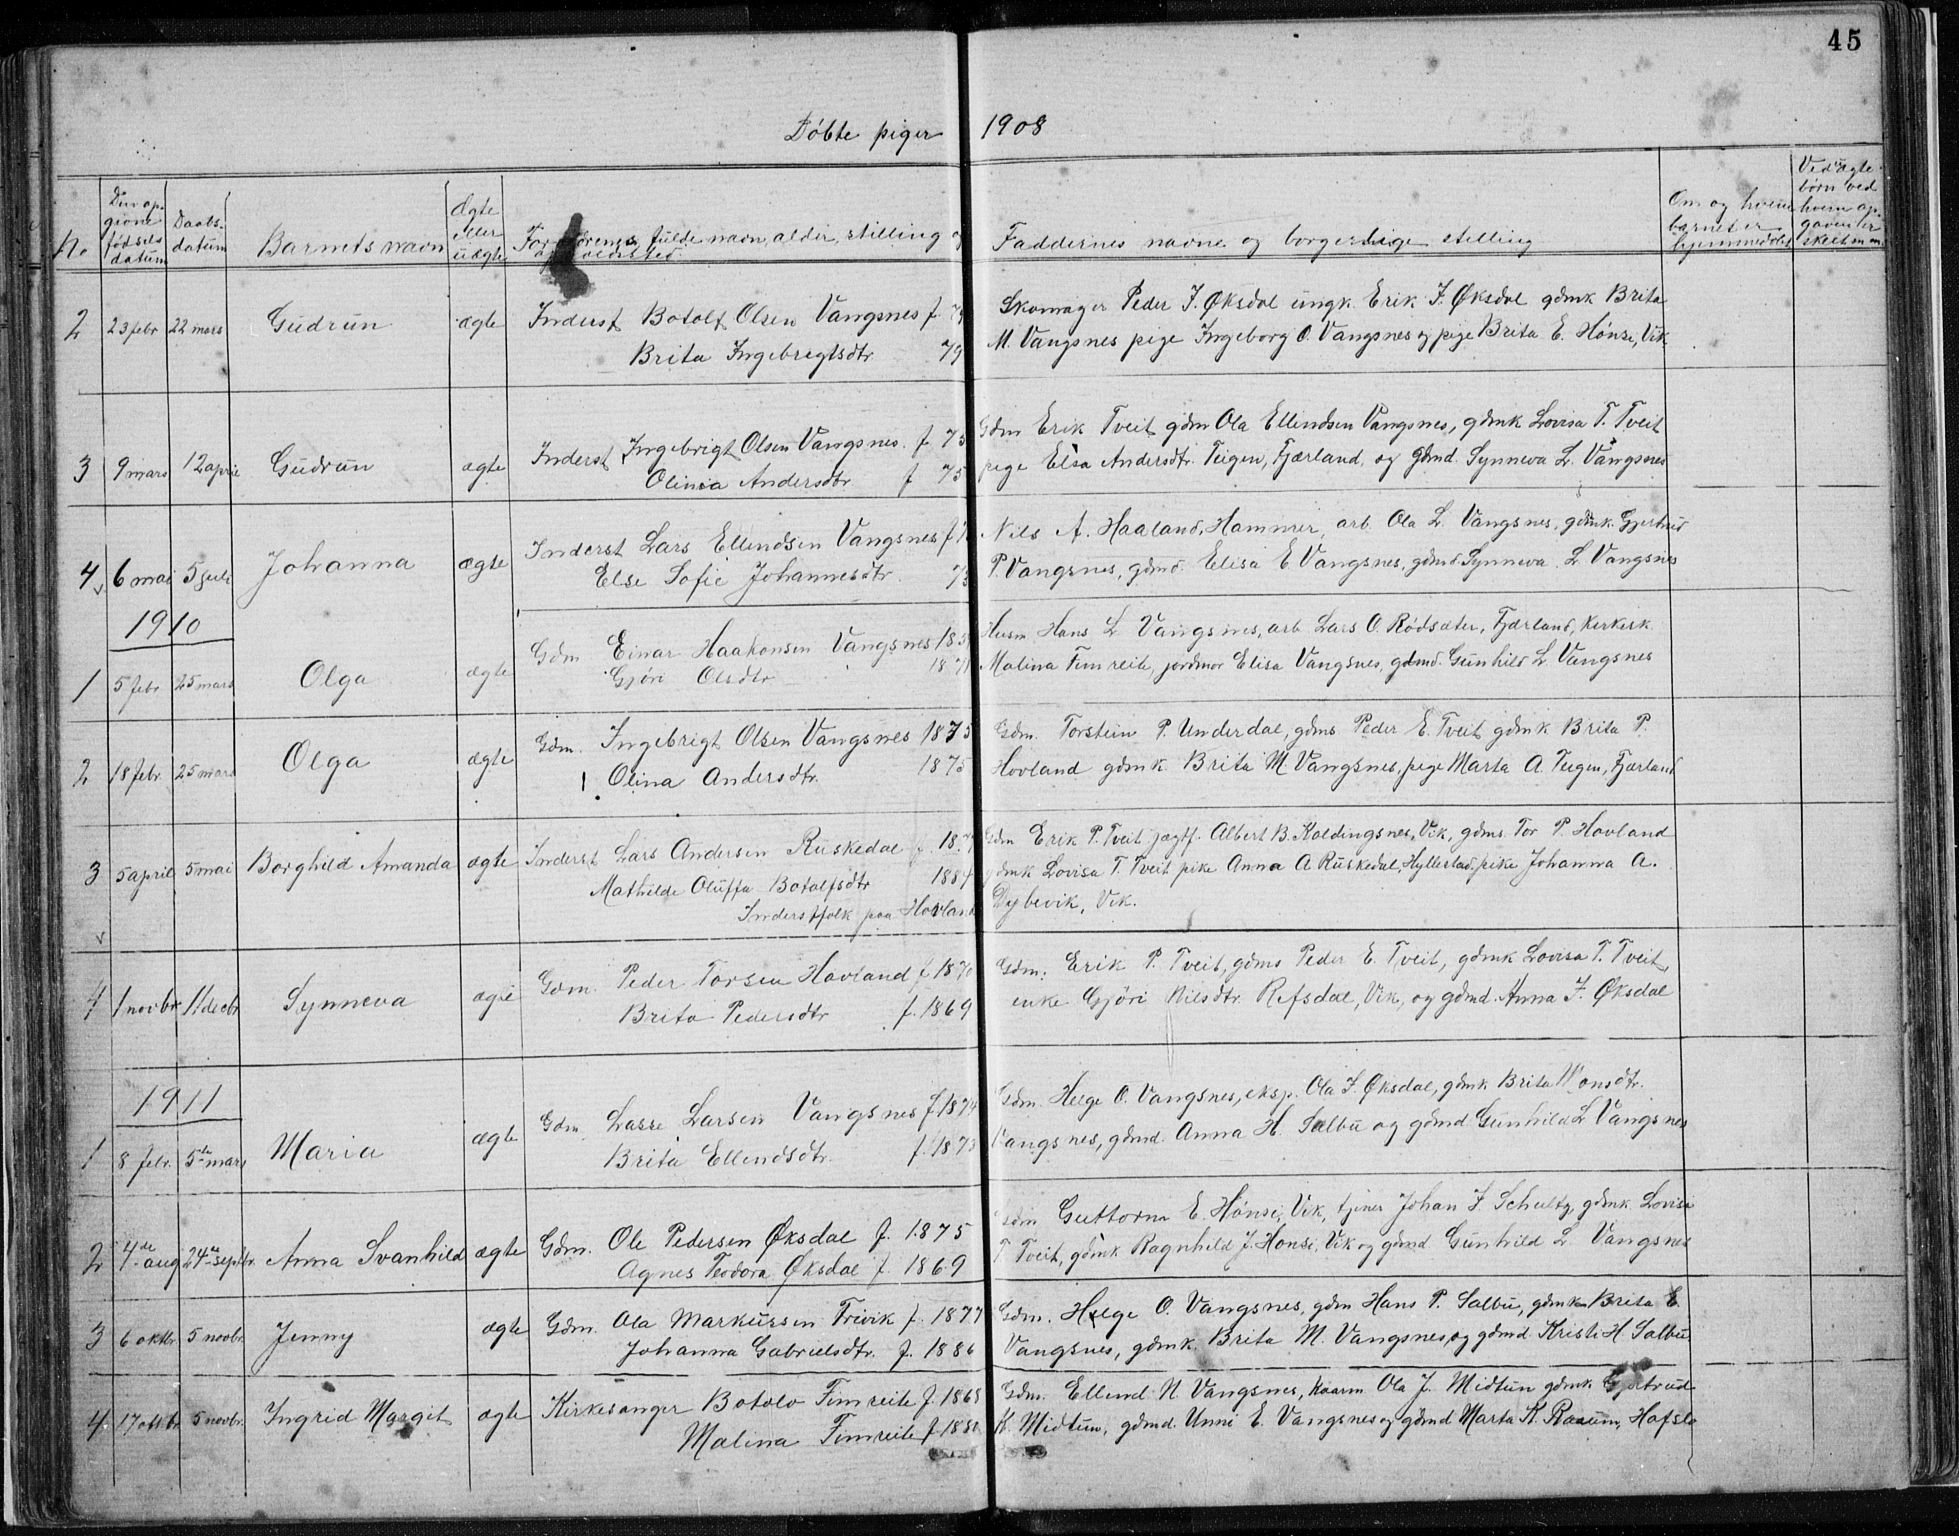 45
Döbte piger 1908
No
Den op-
givne
fødsels
datum
Daabs-
datum
Barnets navn
Ægte
eller
uægte
fulde navn, alder, stilling og
Faddernes navne og borgerlige stilling
Om og hvem
barnet er
hjemmedöbt
Ved uægte
børn ved
hvem op-
gaven er
skeet m.m.
2 23 febr 22 mars Gudrun ægte Inderst Botolf Olsen Vangsnes f. Skomager Peder J. Øksdal ungk. Erik J. Øksdal gdmk Brita
Brita Ingebregtsdtr 79 M. Vangsnes pige Ingeborg O. Vangsnes og pige Brita E. Hönsi, Vik
3 9 mars 12 april Gudrun ægte Inderst Ingebrigt Olsen Vangsnes. f. 75 Gdm Erik Tveit gdm Ola Ellendsen Vangsnes, gdmk Lovisa T. Tveit
Olina Andersdtr f 75 pige Elsa Andersdtr. Teigen, Fjærland, og gdmd. Synneva L. Vangsnes
4 6 mai 5 juli Johanna ægte Inderst Lars Ellendsen Vangsnes f Nils A. Haaland, Hammer, arb. Ola L. Vangsnes, gdmk. Gjertrud
Else Sofie Johannesdtr P. Vangsnes, gdmd. Elisa E Vangsnes, gdmd. Synneva L. Vangsnes
1910
1 5 febr 25 mars Olga ægte Gdm Einar Haakonsen Vangsnes Husm Hans L Vangsnes, arb. Lars O. Rödsæter, Fjærland, Kirkesk.
Gjöri Olsdtr 1871 Malina Fimreite, jordmor Elisa Vangsnes, gdmd. Gunhild L. Vangsnes
2 18 febr. 25 mars Olga ægte Gdm. Ingebrigt Olsen Vangsnes 1875 Gdm. Torstein P. Underdal, gdms Peder E. Tveit, gdmk Brita P.
Olina Andersdtr. 1875 Hovland gdmk. Brita M. Vangsnes, pige Marta A. Teigen, Fjærland
3 5 april 5 mai Borghild Amanda ægte Inderst Lars Andersen Ruskedal f. Gdm Erik P. Tveit jægtf. Albert B. Koldingsnes, Vik, gdms. Tor P. Hovland
Mathilde Oluffa Botolfsdtr 1884 gdmk Lovisa T. Tveit pike Anna A Ruskedal, Hyllestad, pike Johanna A.
Inderstfolk paa Hovland Dybevik, Vik.
4 1 novbr 11 decbr Synneva ægte Gdm. Peder Torsen Hovland f. 1870 Gdm: Erik P. Tveit, gdms Peder E. Tveit, gdmk Lovisa T. Tveit,
Brita Pedersdtr f. 1869 enke Gjöri Nilsdtr. Refsdal, Vik, og gdmd. Anna J. Øksdal
1911
1 8 febr. 5te mars Maria ægte Gdm. Lasse Larsen Vangsnes f. 1874 Gdm. Helge O. Vangsnes, eksp. Ola J. Øksdal, gdmk Brita
Brita Ellendsdtr. f. 1873 Vangsnes, gdmd. Anna H. Salbu og gdmd. Gunhild L Vangsnes
2 4de aug 24de septbr. Anna Svanhild ægte Gdm. Ole Pedersen Øksdal f. 1875 Gdm Guttorm E. Hönsi, Vik, tjener Johan J. Schultz, gdmk Lovisa
Agnes Teodora Øksdal f. 1869 T Tveit, gdmk Ragnhild J. Hönsi, Vik og gdmd Gunhild L. Vangsnes
3 6 oktbr 5 novbr. Jenny ægte Gdm. Ola Markussen Trivik f. 1877 Gdm. Helge O. Vangsnes, gdm Hans P. Salbu, gdmk Brita E.
Johanna Gabrielsdtr. f. 1886 Vangsnes, gdmk. Brita M. Vangsnes, og gdmd Kristi H. Salbu
4. 17 oktbr 5 novbr. Ingrid Margit ægte Kirkesanger Botolv Fimreite f. 1868 Gdm. Ellend N. Vangsnes, kaarm Ola J. Midtun gdmk Gjertrud
Malina Fimreite f. 1880 K. Midtun, gdmd. Unni E. Vangsnes og gdmd Marta K. Raaum, Hafslo